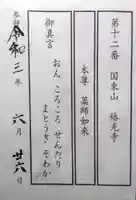 第十二番 国東山
本尊 薬師如来
御真言
おん ころころ せんたり
まとうき そわか
令和三年 六月 廿六日